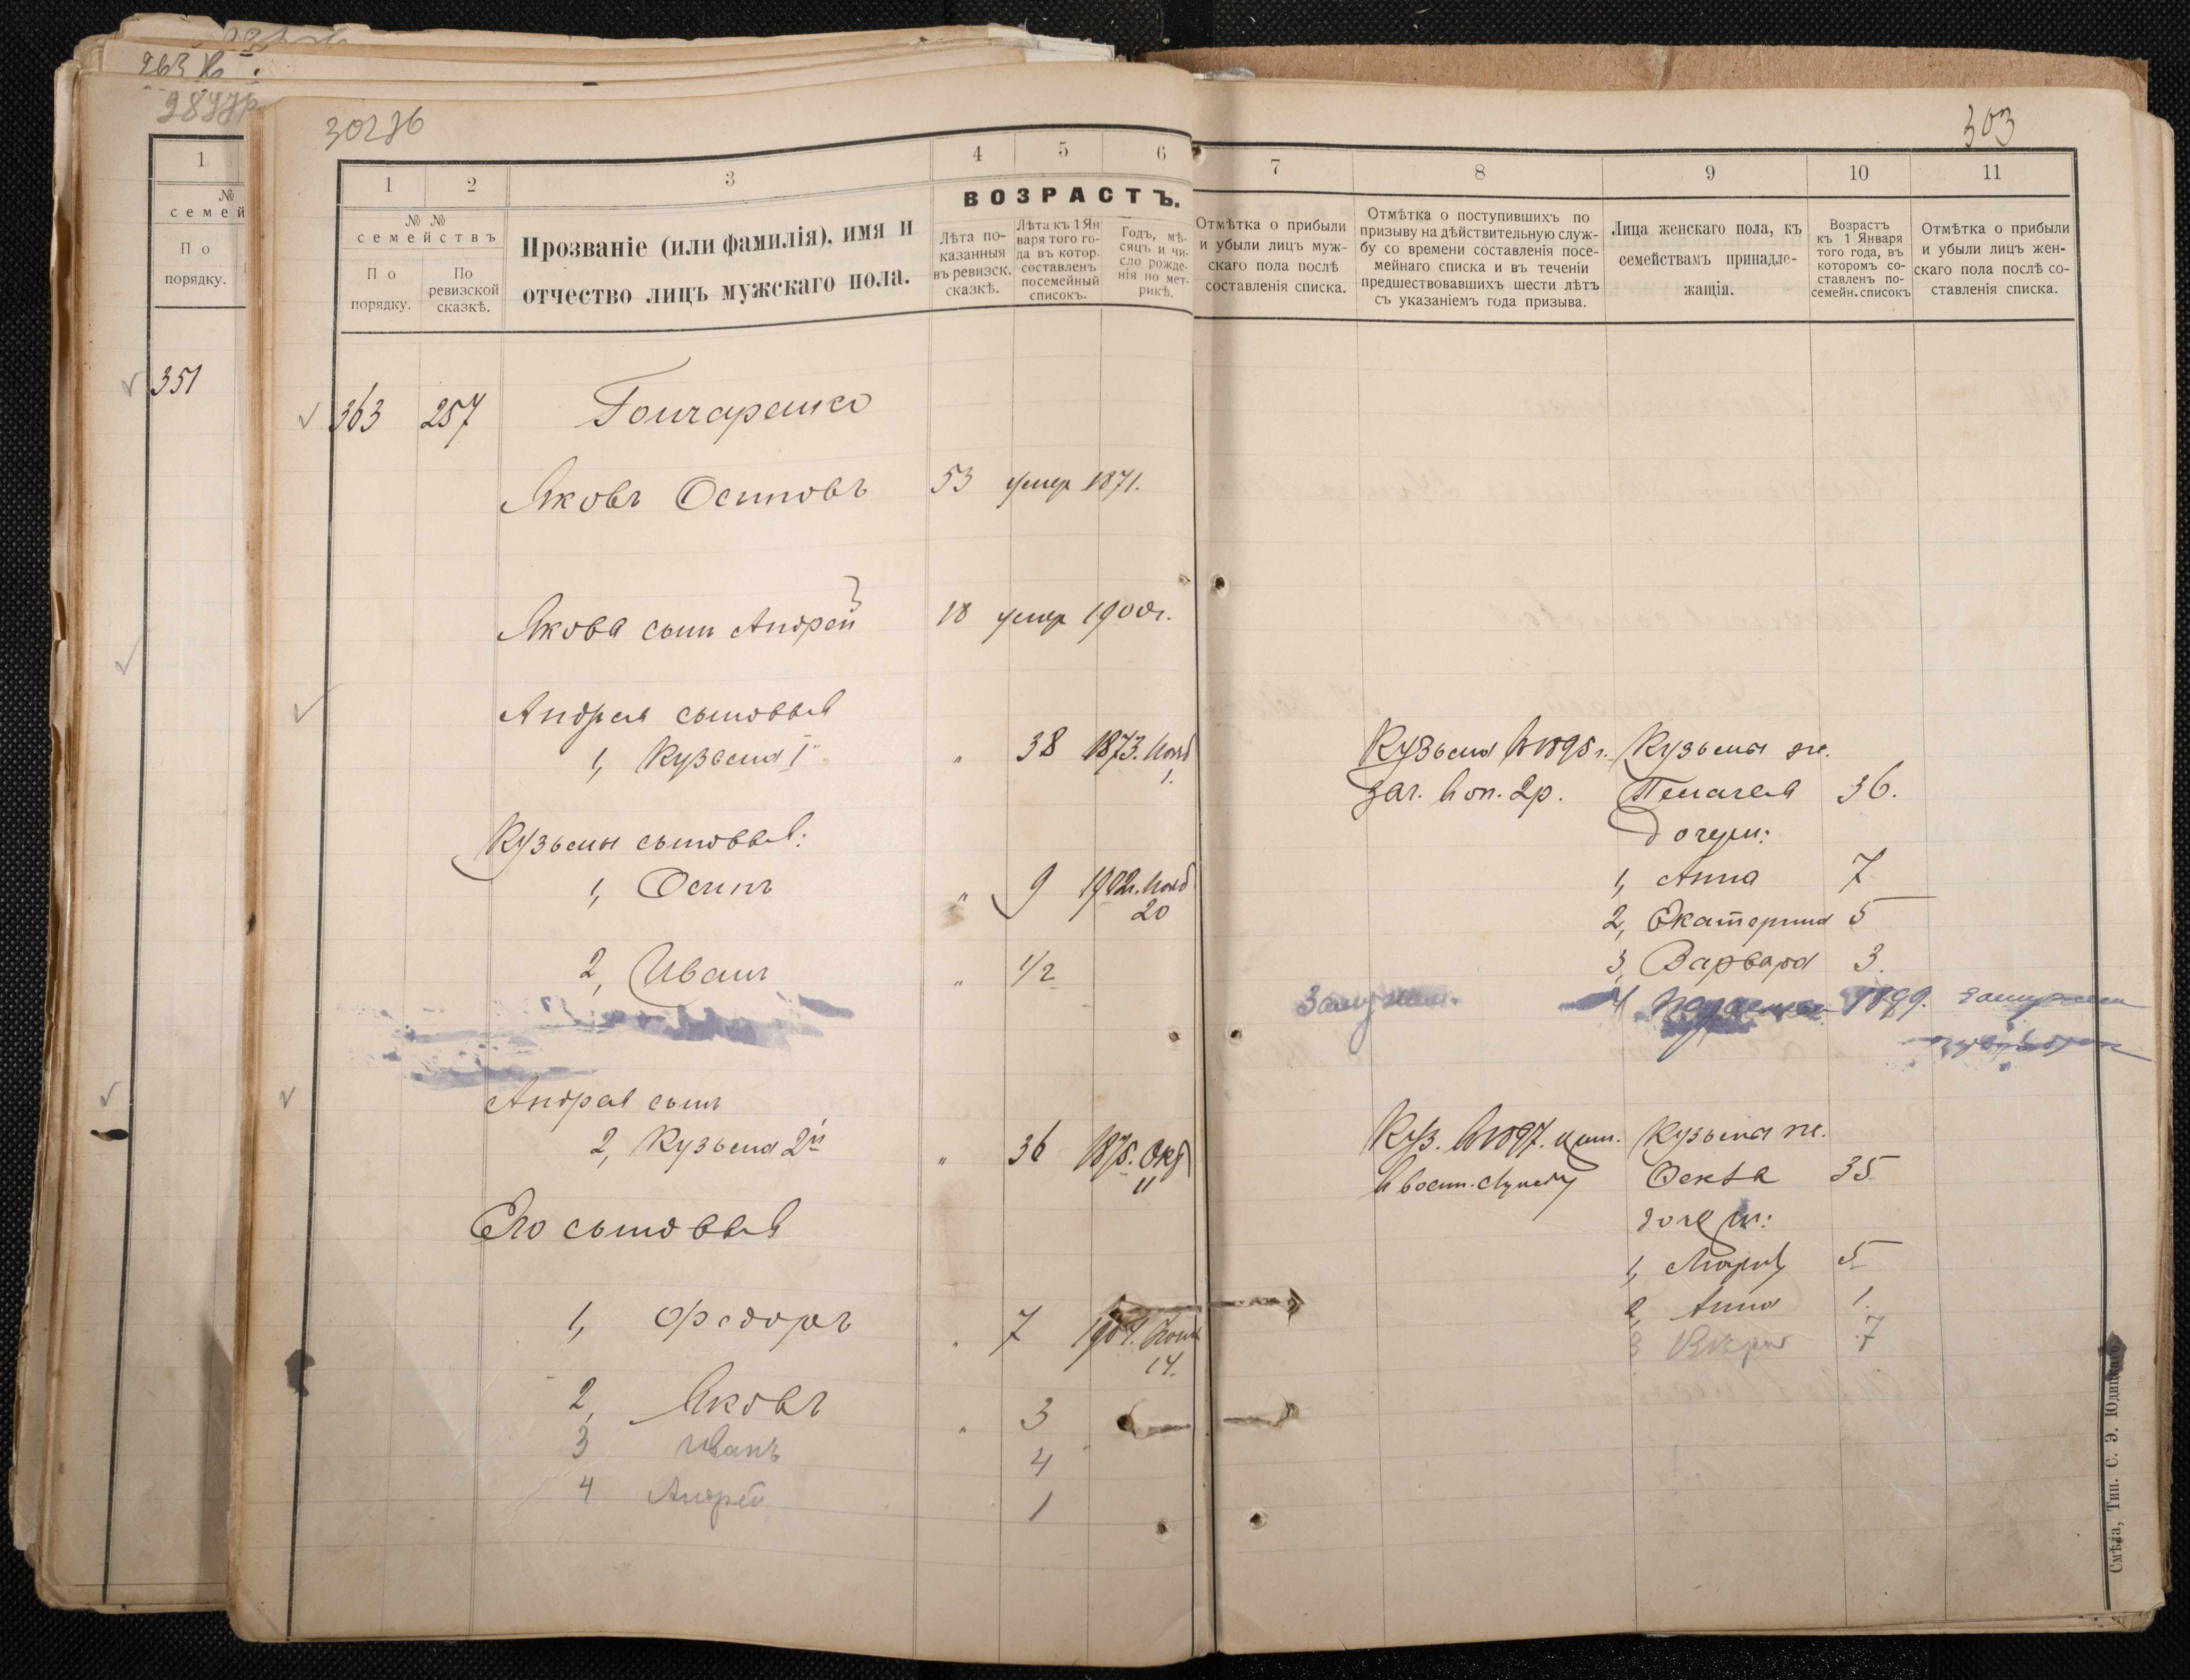 351
1
№
семей
По
порядку.
303
1
2
3
4
5
6
7
8
9
10
11
№ №
семействъ
По
порядку.
По
ревизской
сказкѣ.
Прозваніе (или фамилія), имя и
отчество лицъ мужскаго пола.
ВОЗРАСТЪ.
Лѣта по-
казанныя
въ ревизск.
сказкѣ.
Лѣта къ 1 Ян
варя того го-
да въ котор.
составленъ
посемейный
списокъ.
Годъ, мѣ-
сяцъ и чи-
сло рожде-
нія по мет-
рикѣ.
Отмѣтка о прибыли
и убыли лицъ муж-
скаго пола послѣ
составленія списка.
Отмѣтка о поступившихъ по
призыву на дѣйствительную служ-
бу со времени составленія посе-
мейнаго списка и въ теченіи
предшествовавшихъ шести лѣтъ
съ указаніемъ года призыва.
Лица женскаго пола, къ
семействамъ принадле-
жащія.
Возрастъ
къ 1 Января
того года, въ
которомъ со-
ставленъ по-
семейн. списокъ
Отмѣтка о прибыли
и убыли лицъ жен-
скаго пола послѣ со-
ставленія списка.
363 257 Гончаренко
Яковъ Осиповъ 53 умер 1871.
Якова сынъ Андрей 18 умер 1900г.
Андрея сыновья
1, Кузьма 1 " 38 1873. Нояб
1.
Кузьма в 1895 г. Кузьмы ж.
зач. в оп. 2р. Пелагея 36.
Дочери:
Кузьмы сыновья:
1, Осипъ " 9 1902г. Нояб
20
1, Анна 7
2, Екатерина 5
2, Иванъ " 1/2
3, Варвара 3.
Замужем.
4 1899. замужем
Андрея сынъ
2, Кузьма 2й " 36 1875. Окт
11
Куз. в 1897. Кузьма ж.
35
дочери:
Его сыновья
1, Мария 5
2, Анна 1.
3 Вѣра 7
1, Федоръ " 7 1904.
14.
2, Яковъ " 3
3 Иванъ 4
4 Андрей 1
Смѣла, Тип. С. Э. Юдицкаго